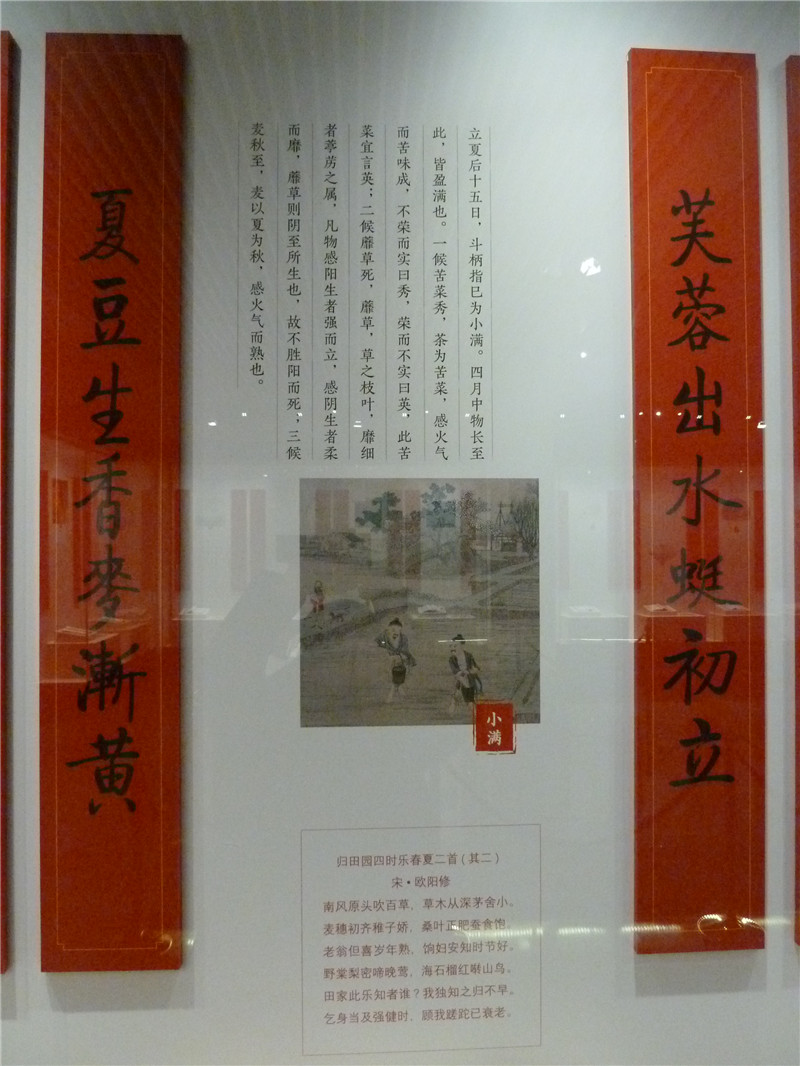 芙蓉出水蜓初立
立夏后十五日，斗柄指巳为小满。四月中物长至
此，皆盈满也。一候苦菜秀，荼为苦菜，感火气
而苦味成，不荣而实曰秀，荣而不实曰英，此苦
菜宜言英；二候蘼草死，蘼草，草之枝叶，靡细
者葶苈之属，凡物感阳生者强而立，感阴生者柔
而靡，蘼草则阴至所生也，故不胜阳而死；三候
麦秋至，麦以夏为秋，感火气而熟也。
夏豆生香麥漸黄
小满
归田园四时乐春夏二首（其二）
宋·欧阳修
南风原头吹百草，草木从深茅舍小。
麦穗初齐稚子娇，桑叶正肥蚕食饱。
老翁但喜岁年熟，饷妇安知时节好。
野棠梨密啼晚莺，海石榴红啭山鸟。
田家此乐知者谁？我独知之归不早。
乞身当及强健时，顾我蹉跎已衰老。